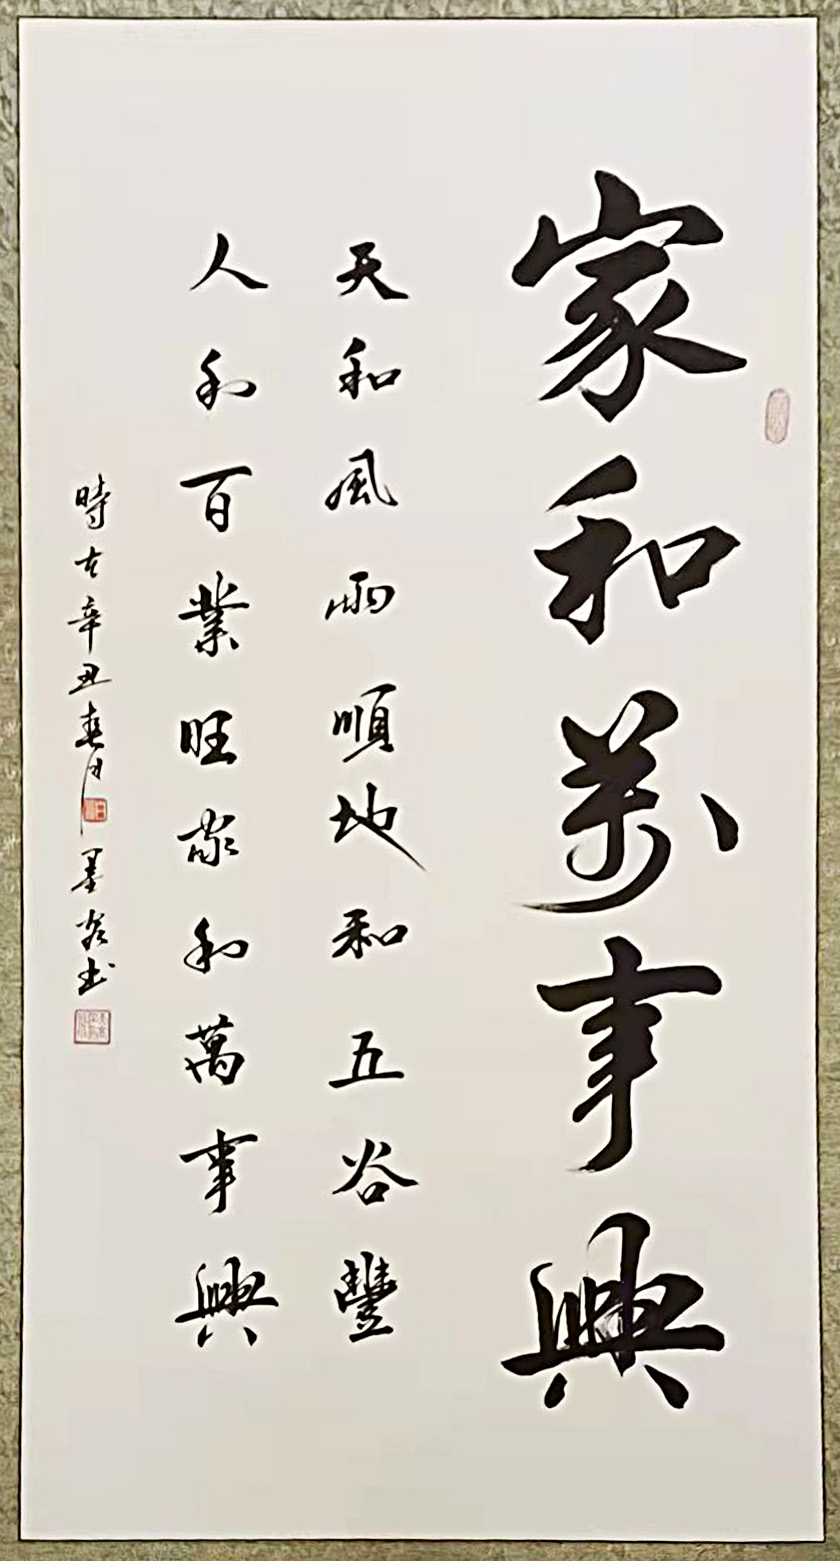 家和萬事興
天和風雨順地和五谷豐
人和百業旺家和萬事興
時在辛丑春月墨
書